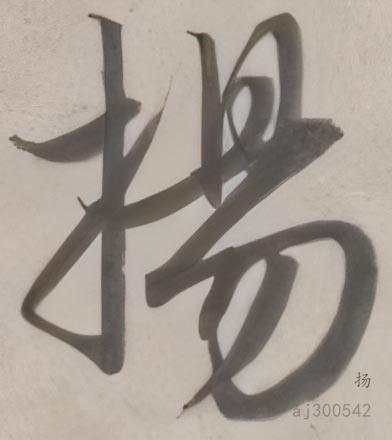 揚
扬
aj300542